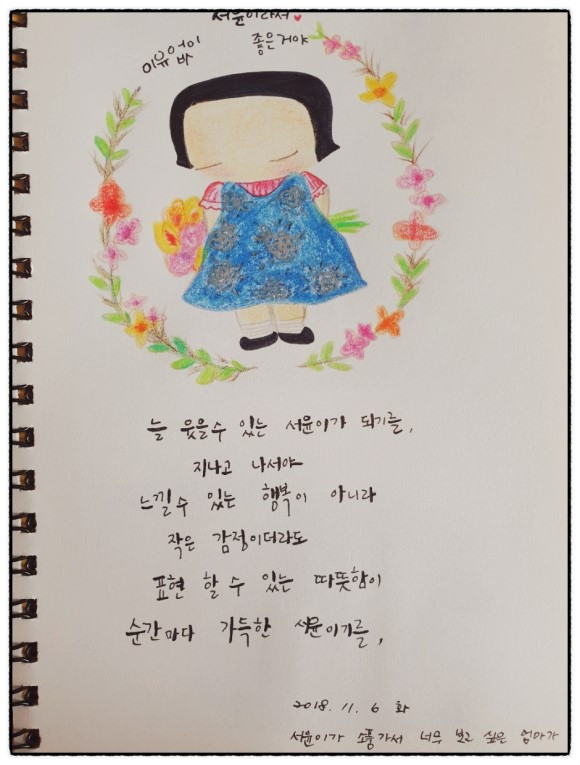 서윤이라서
이유없이
좋은거야
늘 웃을수 있는 서윤이가 되기를,
지나고 나서야
느낄수 있는 행복이 아니라
작은 감정이더라도
표현 할 수 있는 따뜻함이
순간마다 가득한 서윤이기를,
2018. 11. 6 화
서윤이가 소풍가서 너무 보고 싶은 엄마가